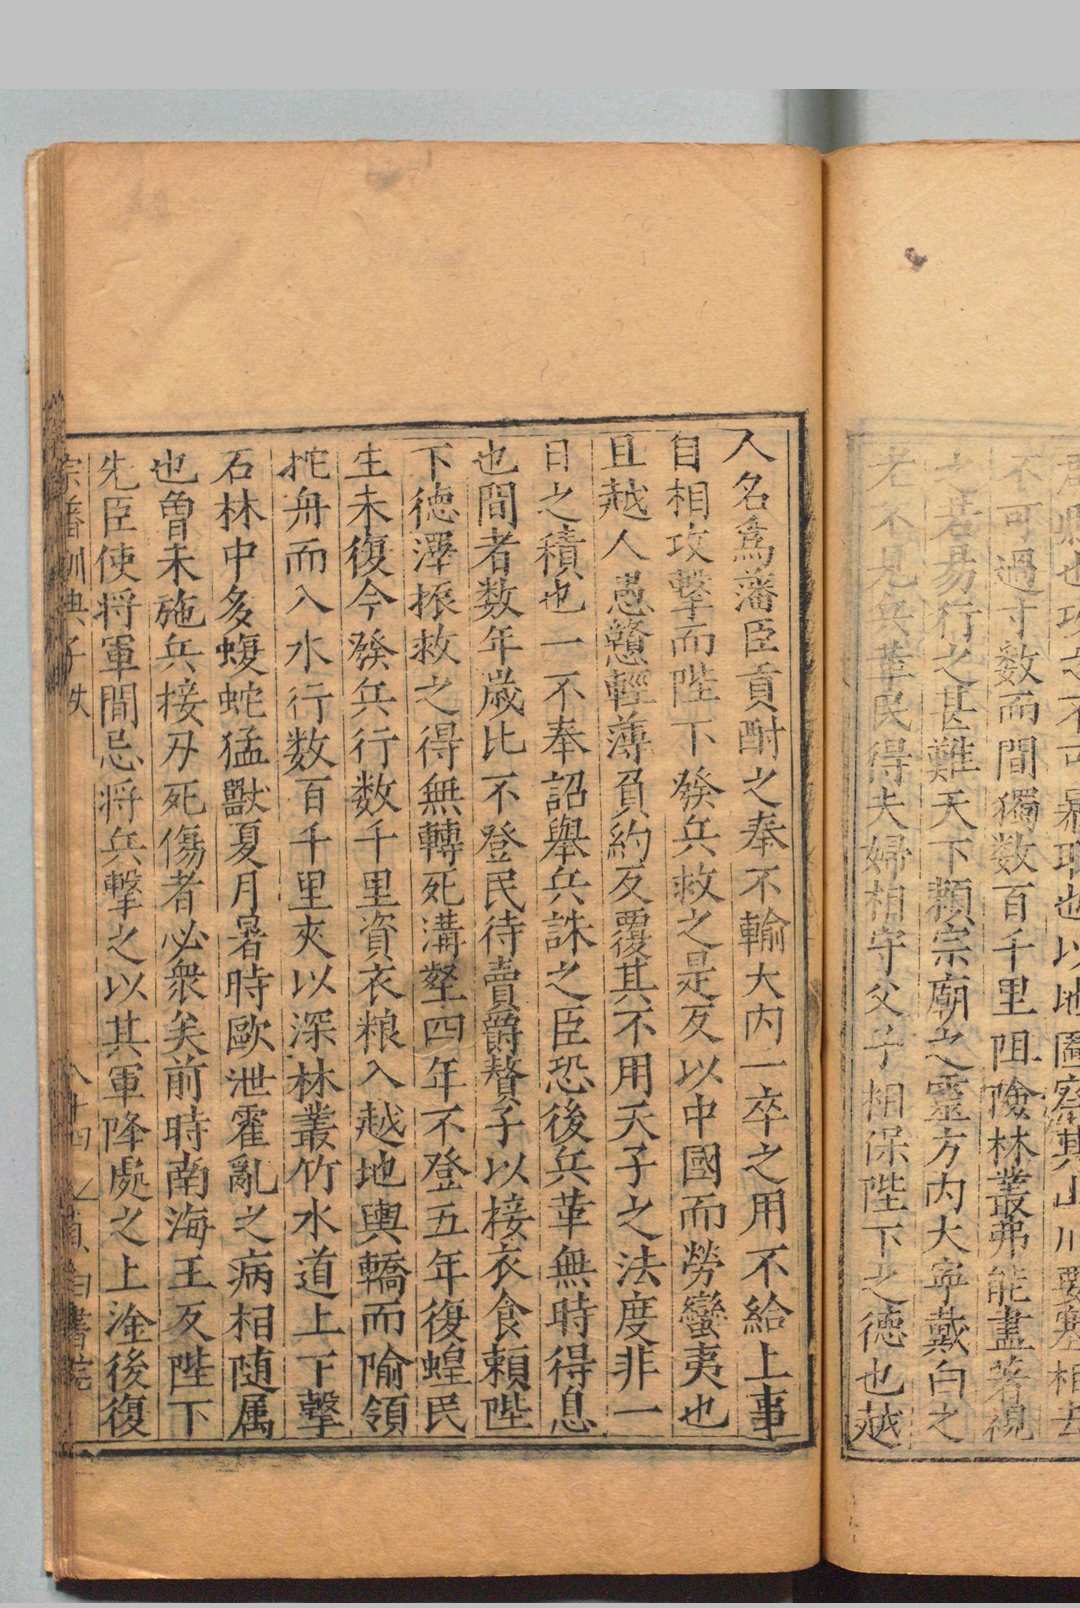 不可過寸数而間獨数百千里阻險林叢弗能盡著視
若易行之甚難天下賴宗廟之靈方内大寕戴白之
老不見兵革民得夫婦相守父子相保陛下之德也越
人名爲藩臣貢酎之奉不輸大内一卒之用不給上事
自相攻擊而陛下發兵救之是反以中國而勞蠻夷也
且越人愚戇輕薄負約反覆其不用天子之法度非一
日之積也一不奉詔舉兵誅之臣恐後兵革無時得息
也間者数年歲比不登民待賣爵贅子以接衣食賴陛
下德澤振救之得無轉死溝壑四年不登五年復蝗民
生未復今發兵行数千里資衣粮入越地輿轎而隃領
拕舟而入水行数百千里夾以深林叢竹水道上下擊
石林中多蝮蛇猛獸夏月暑時歐泄霍亂之病相随属
也曾未施兵接刃死傷者必衆矣前時南海王反陛下
先臣使将軍間忌将兵擊之以其軍降處之上淦後復